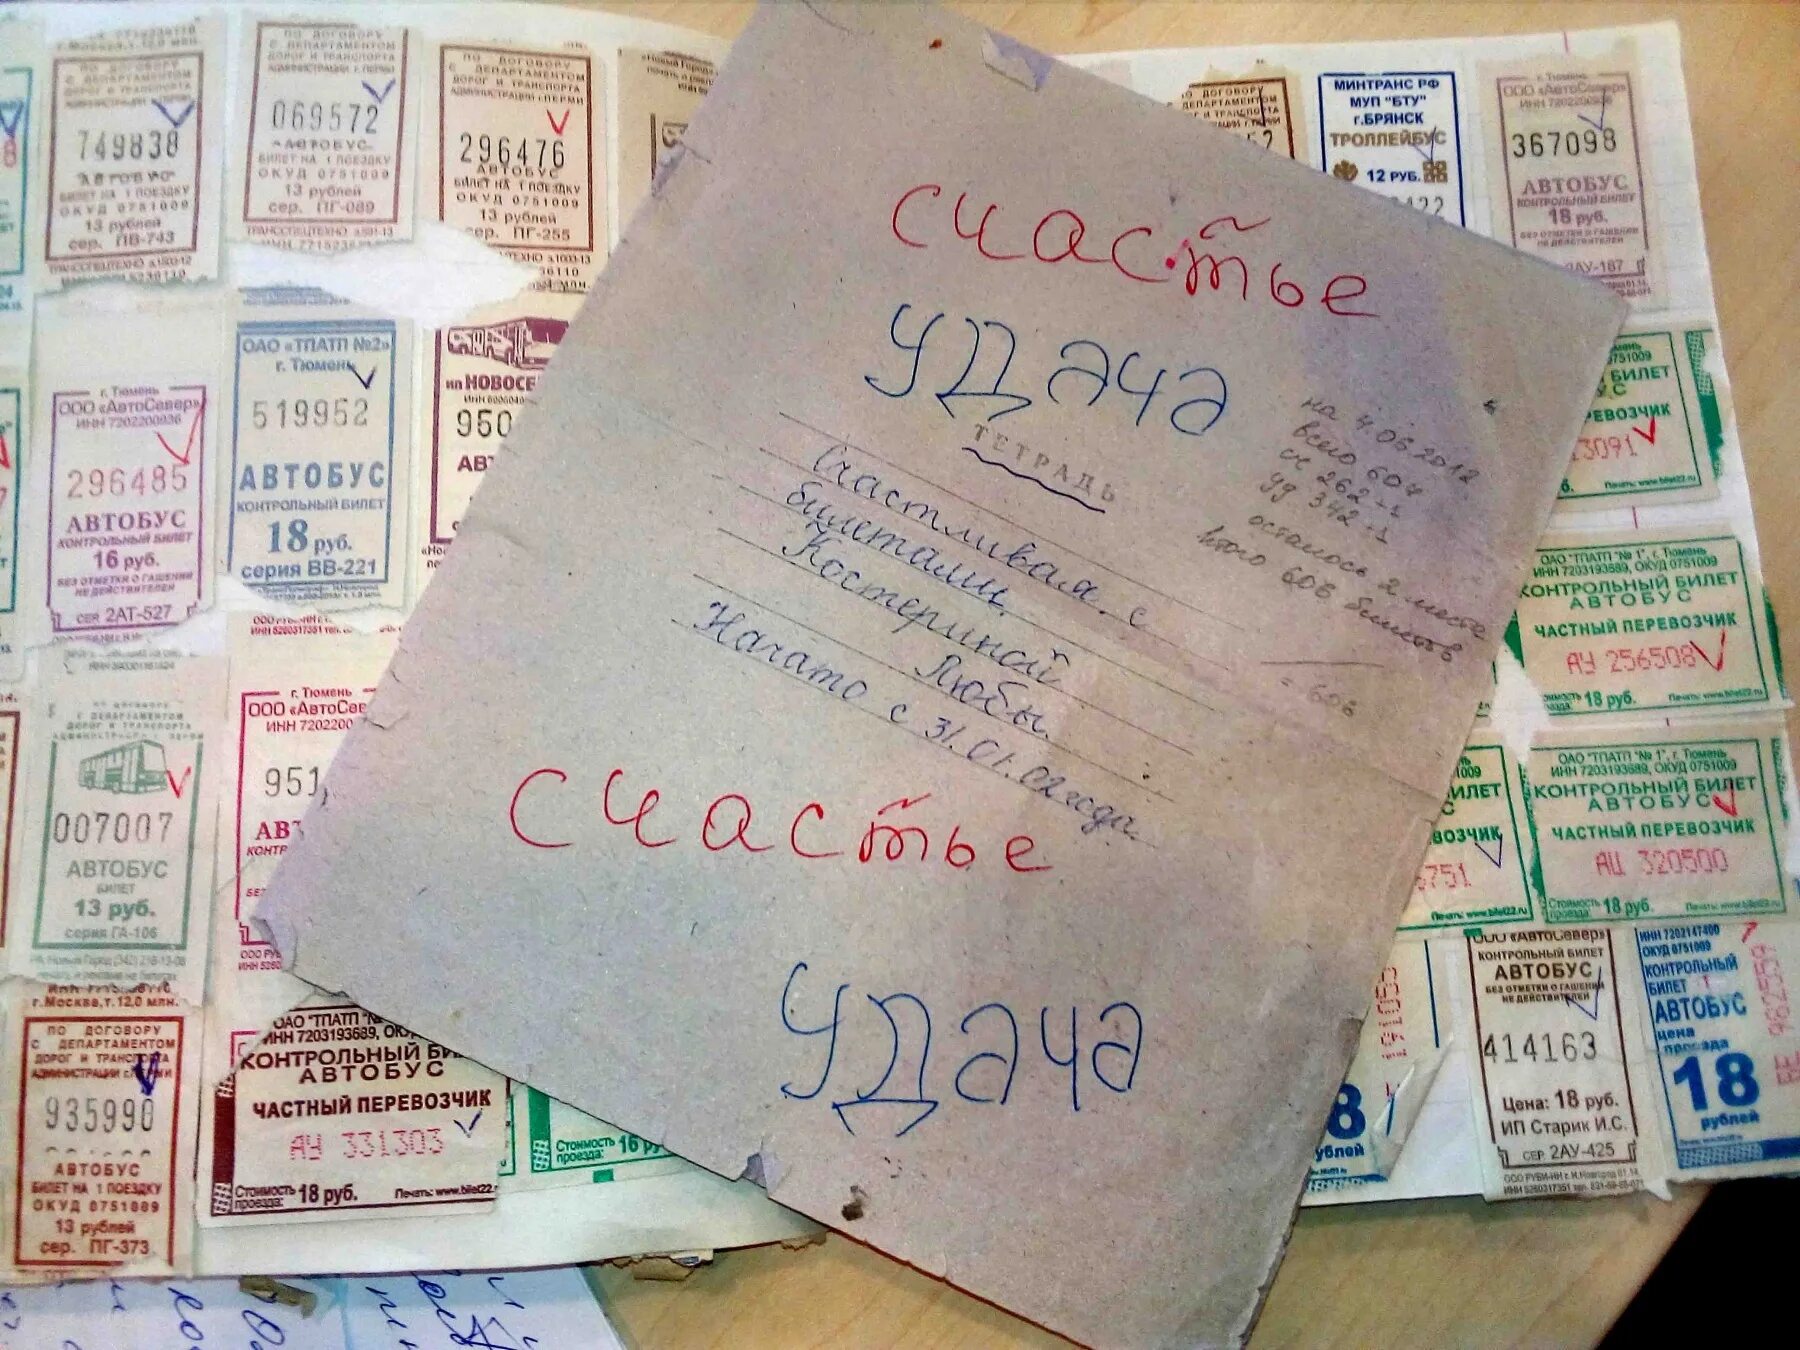 г.Москва,т.12,0 млн.
ПО ДОГОВОРУ
С ДЕПАРТАМЕНТОМ
ДОРОГ И ТРАНСПОРТА
749838
АВТОБУС
БИЛЕТ НА 1 ПОЕЗДКУ
ОКУД 0751009
13 рублей
сер. ПВ-743
ПО ДОГОВОРУ
С ДЕПАРТАМЕНТОМ
ДОРОГ И ТРАНСПОРТА
АДМИНИСТРАЦИИ г.ПЕРМИ
069572
АВТОБУС
БИЛЕТ НА 1 ПОЕЗДКУ
ОКУД 0751009
13 рублей
сер. ПГ-089
ПО ДОГОВОРУ
С ДЕПАРТАМЕНТОМ
ДОРОГ И ТРАНСПОРТА
АДМИНИСТРАЦИИ г.ПЕРМИ
296476
АВТОБУС
БИЛЕТ НА 1 ПОЕЗДКУ
ОКУД 0751009
13 рублей
сер. ПГ-255
МИНТРАНС РФ
МУП "БТУ"
г.БРЯНСК
ТРОЛЛЕЙБУС
12 РУБ.
г. Тюмень
ООО «АвтоСевер»
ИНН 7202200936
367098
АВТОБУС
КОНТРОЛЬНЫЙ БИЛЕТ
18 руб.
БЕЗ ОТМЕТКИ О ГАШЕНИИ
НЕ ДЕЙСТВИТЕЛЕН
2АУ-187
г. Тюмень
ООО «АвтоСевер»
ИНН 7202200936
296485
АВТОБУС
КОНТРОЛЬНЫЙ БИЛЕТ
16 руб.
БЕЗ ОТМЕТКИ О ГАШЕНИИ
НЕ ДЕЙСТВИТЕЛЕН
СЕР. 2АТ-527
ОАО «ТПАТП №2»
г. Тюмень
519952
АВТОБУС
КОНТРОЛЬНЫЙ БИЛЕТ
18 руб.
серия ВВ-221
ИП НОВОСЕ
950
АВ
СЧАСТЬЕ
УДАЧА
ТЕТРАДЬ
Счастливая с
билетами
Костериной
Любы.
Начато с 31.01.02 года.
на 4.06.2012
всего 604
сч 262 +1
уд 342 +1
осталось 2 места
Итого 606 билетов
= 606
СЧАСТЬЕ
УДАЧА
БИЛЕТ
ПЕРЕВОЗЧИК
13091
Печать: www.bilet22.ru
ОАО "ТПАТП №1", г. Тюмень
ИНН 7203193689, ОКУД 0751009
КОНТРОЛЬНЫЙ БИЛЕТ
АВТОБУС
ЧАСТНЫЙ ПЕРЕВОЗЧИК
АУ 256508
18 руб. Печать: www.bilet22.ru
С ДЕПАРТАМЕНТОМ
ДОРОГ И ТРАНСПОРТА
АДМИНИСТРАЦИИ г. ПЕРМИ
007007
АВТОБУС
БИЛЕТ
13 руб.
серия ГА-106
г. Тюмень
ООО «АвтоСевер
ИНН 7202200
951
АВТ
КОНТР
ИЛЕТ
ВОЗЧИК
6751
ОАО "ТПАТП №1", г. Тюмень
ИНН 7203193689, ОКУД 0751009
КОНТРОЛЬНЫЙ БИЛЕТ
АВТОБУС
ЧАСТНЫЙ ПЕРЕВОЗЧИК
АЦ 320500
Стоимость проезда: 18 руб. Печать: www.bilet22.ru
г.Москва,т.12,0 млн.
ПО ДОГОВОРУ
С ДЕПАРТАМЕНТОМ
ДОРОГ И ТРАНСПОРТА
АДМИНИСТРАЦИИ г.ПЕРМИ
935990
АВТОБУС
БИЛЕТ НА 1 ПОЕЗДКУ
ОКУД 0751009
13 рублей
сер. ПГ-373
ОАО "ТПАТП №1", г. Тюмень
ИНН 7203193689, ОКУ
КОНТРОЛЬНЫЙ БИ
АВТОБУС
ЧАСТНЫЙ ПЕРЕВОЗЧИК
АУ 331303
Стоимость проезда: 18 руб. Печать: www.bilet22.
Стоимость проезда: 16 ру
191053
8
рублей
ООО «АвтоСевер»
КОНТРОЛЬНЫЙ БИЛЕТ
АВТОБУС
БЕЗ ОТМЕТКИ О ГАШЕНИИ
НЕ ДЕЙСТВИТЕЛЕН
414163
Цена: 18 руб.
ИП Старик И.С.
СЕР. 2АУ-425
ИНН 7202147400
ОКУД 0751009
КОНТРОЛЬНЫЙ
БИЛЕТ
АВТОБУС
цена
проезда
18
рублей
ЕЕ 962559